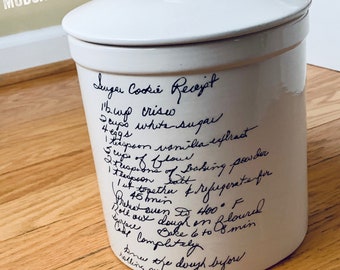 Sugar Cookie Receipt
1 1/2 cup crisco
2 cups white sugar
4 eggs
1 teaspoon vanilla extract
5 cups of flour
2 teaspoons of baking powder
1 teaspoon salt
together & refrigerate for
45 min
Preheat oven to 400° F
Roll out dough on floured
Bake 6 to 8 min
Cool completely
the dough before